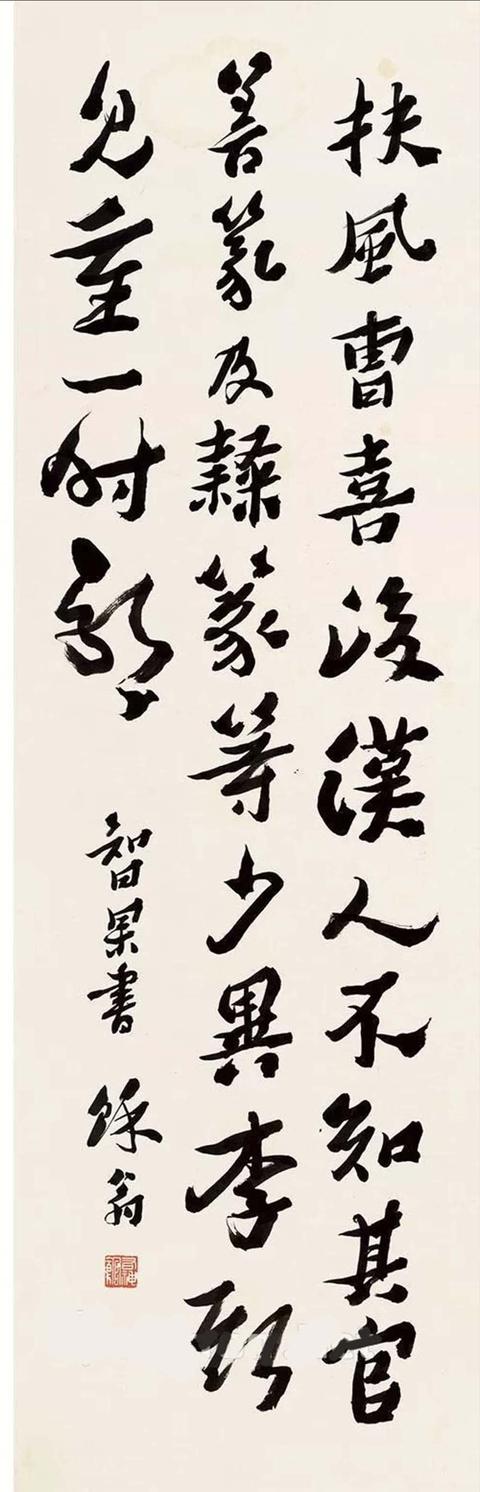 扶風曹喜後漢人不知其官
善篆及隸篆等少異李斯
見重一时
智果書 穌翁